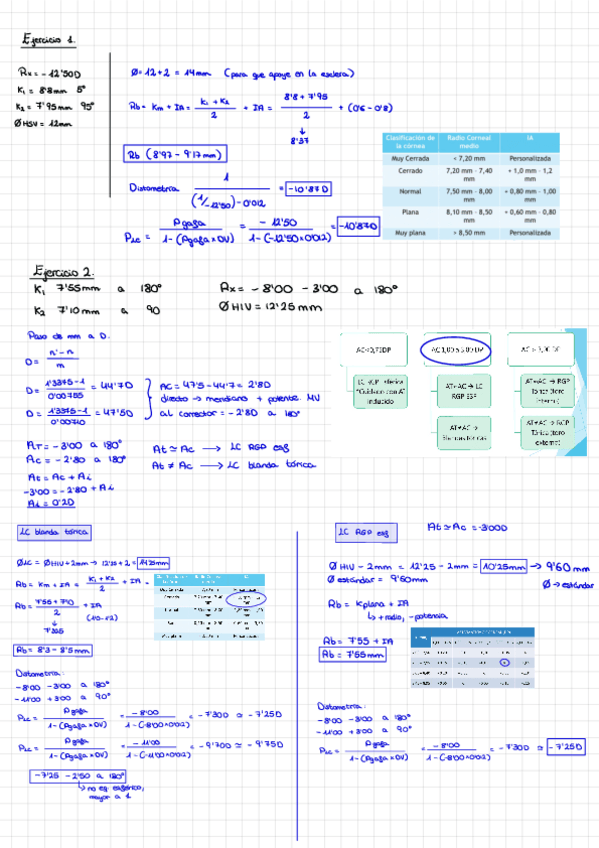 Ejercicio 1.
Rx = -12'50D
K₁ = 8'8mm 5°
K₂ = 7'95mm 95°
ØHSV = 12mm
Ø = 12+2 = 14mm (para que apoye en la esclera)
Rb = Km + IA = K₁ + K₂ / 2 + IA = 8'8 + 7'95 / 2 + (0'6 - 0'8)
↓
8'37
Rb (8'97 - 9'17mm)
Distometría 1 / (1/-12'50) - 0'012 = -10'87D
PLC = Pgafa / 1 - (Pgafa × DV) = -12'50 / 1 - (-12'50×0'012) = -10'87D
Clasificación de la córnea Radio Corneal medio IA
Muy Cerrada < 7,20 mm Personalizada
Cerrado 7,20 mm - 7,40 mm + 1,0 mm - 1,2 mm
Normal 7,50 mm - 8,00 mm + 0,80 mm - 1,00 mm
Plana 8,10 mm - 8,50 mm + 0,60 mm - 0,80 mm
Muy plana > 8,50 mm Personalizada
Ejercicio 2.
K₁ 7'55mm a 180°
K₂ 7'10mm a 90
Rx = -8'00 -3'00 a 180°
ØHIV = 12'25mm
Paso de mm a D.
D = n' - n / m
D = 1'3375 - 1 / 0'00755 = 44'7D
D = 1'3375 - 1 / 0'00710 = 47'5D
AC = 47'5 - 44'7 = 2'8D
directo → meridiano + potente. MV
al corrector = -2'80 a 180°
AT = -3'00 a 180°
AC = -2'80 a 180°
At = Ac + Ai
-3'00 = -2'80 + Ai
Ai = 0'2D
At ≃ Ac → LC RGP esf
At ≠ Ac → LC blanda tórica
LC RGP
AT≠AC → RGP
LC blanda tórica
ØLC = ØHIV + 2mm → 12'25 + 2 = 14'25mm
Rb = Km + IA = K₁ + K₂ / 2 + IA =
Rb = 7'55 + 7'10 / 2 + IA
(1'0 - 1'2)
Rb = 8'3 - 8'5mm
Distometría:
-8'00 -3'00 a 180°
-11'00 +3'00 a 90°
PLC = Pgafa / 1 - (Pgafa × DV) = -8'00 / 1 - (-8'00×0'012) = -7'300 ≃ -7'25D
PLC = Pgafa / 1 - (Pgafa × DV) = -11'00 / 1 - (-11'00×0'012) = -9'700 ≃ -9'75D
-7'25 -2'50 a 180°
↳ no eq. esférico,
mayor a 1
LC RGP esf
At ≃ Ac = -3'00D
ØHIV - 2mm = 12'25 - 2mm = 10'25mm → 9'60 mm
Ø estándar = 9'60mm
Ø → estándar
Rb = Kplana + IA
↳ + radio, - potencia
Rb = 7'55 + IA
Rb = 7'55mm
Distometría:
-8'00 -3'00 a 180°
-11'00 +3'00 a 90°
PLC = Pgafa / 1 - (Pgafa × DV) = -8'00 / 1 - (-8'00×0'012) = -7'300 ≃ -7'25D